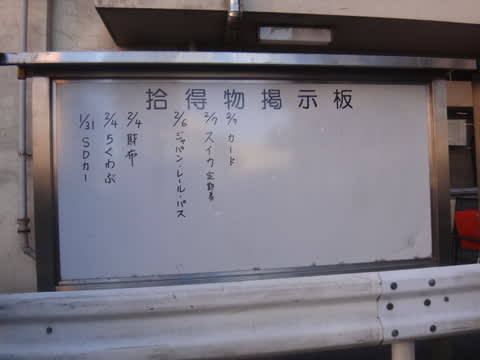 拾得物掲示板
2/7 カード
2/7 スイカ定期券
2/6 ジャパン・レール・パス
2/4 財布
2/4 ちくわぶ
1/31 SDカー